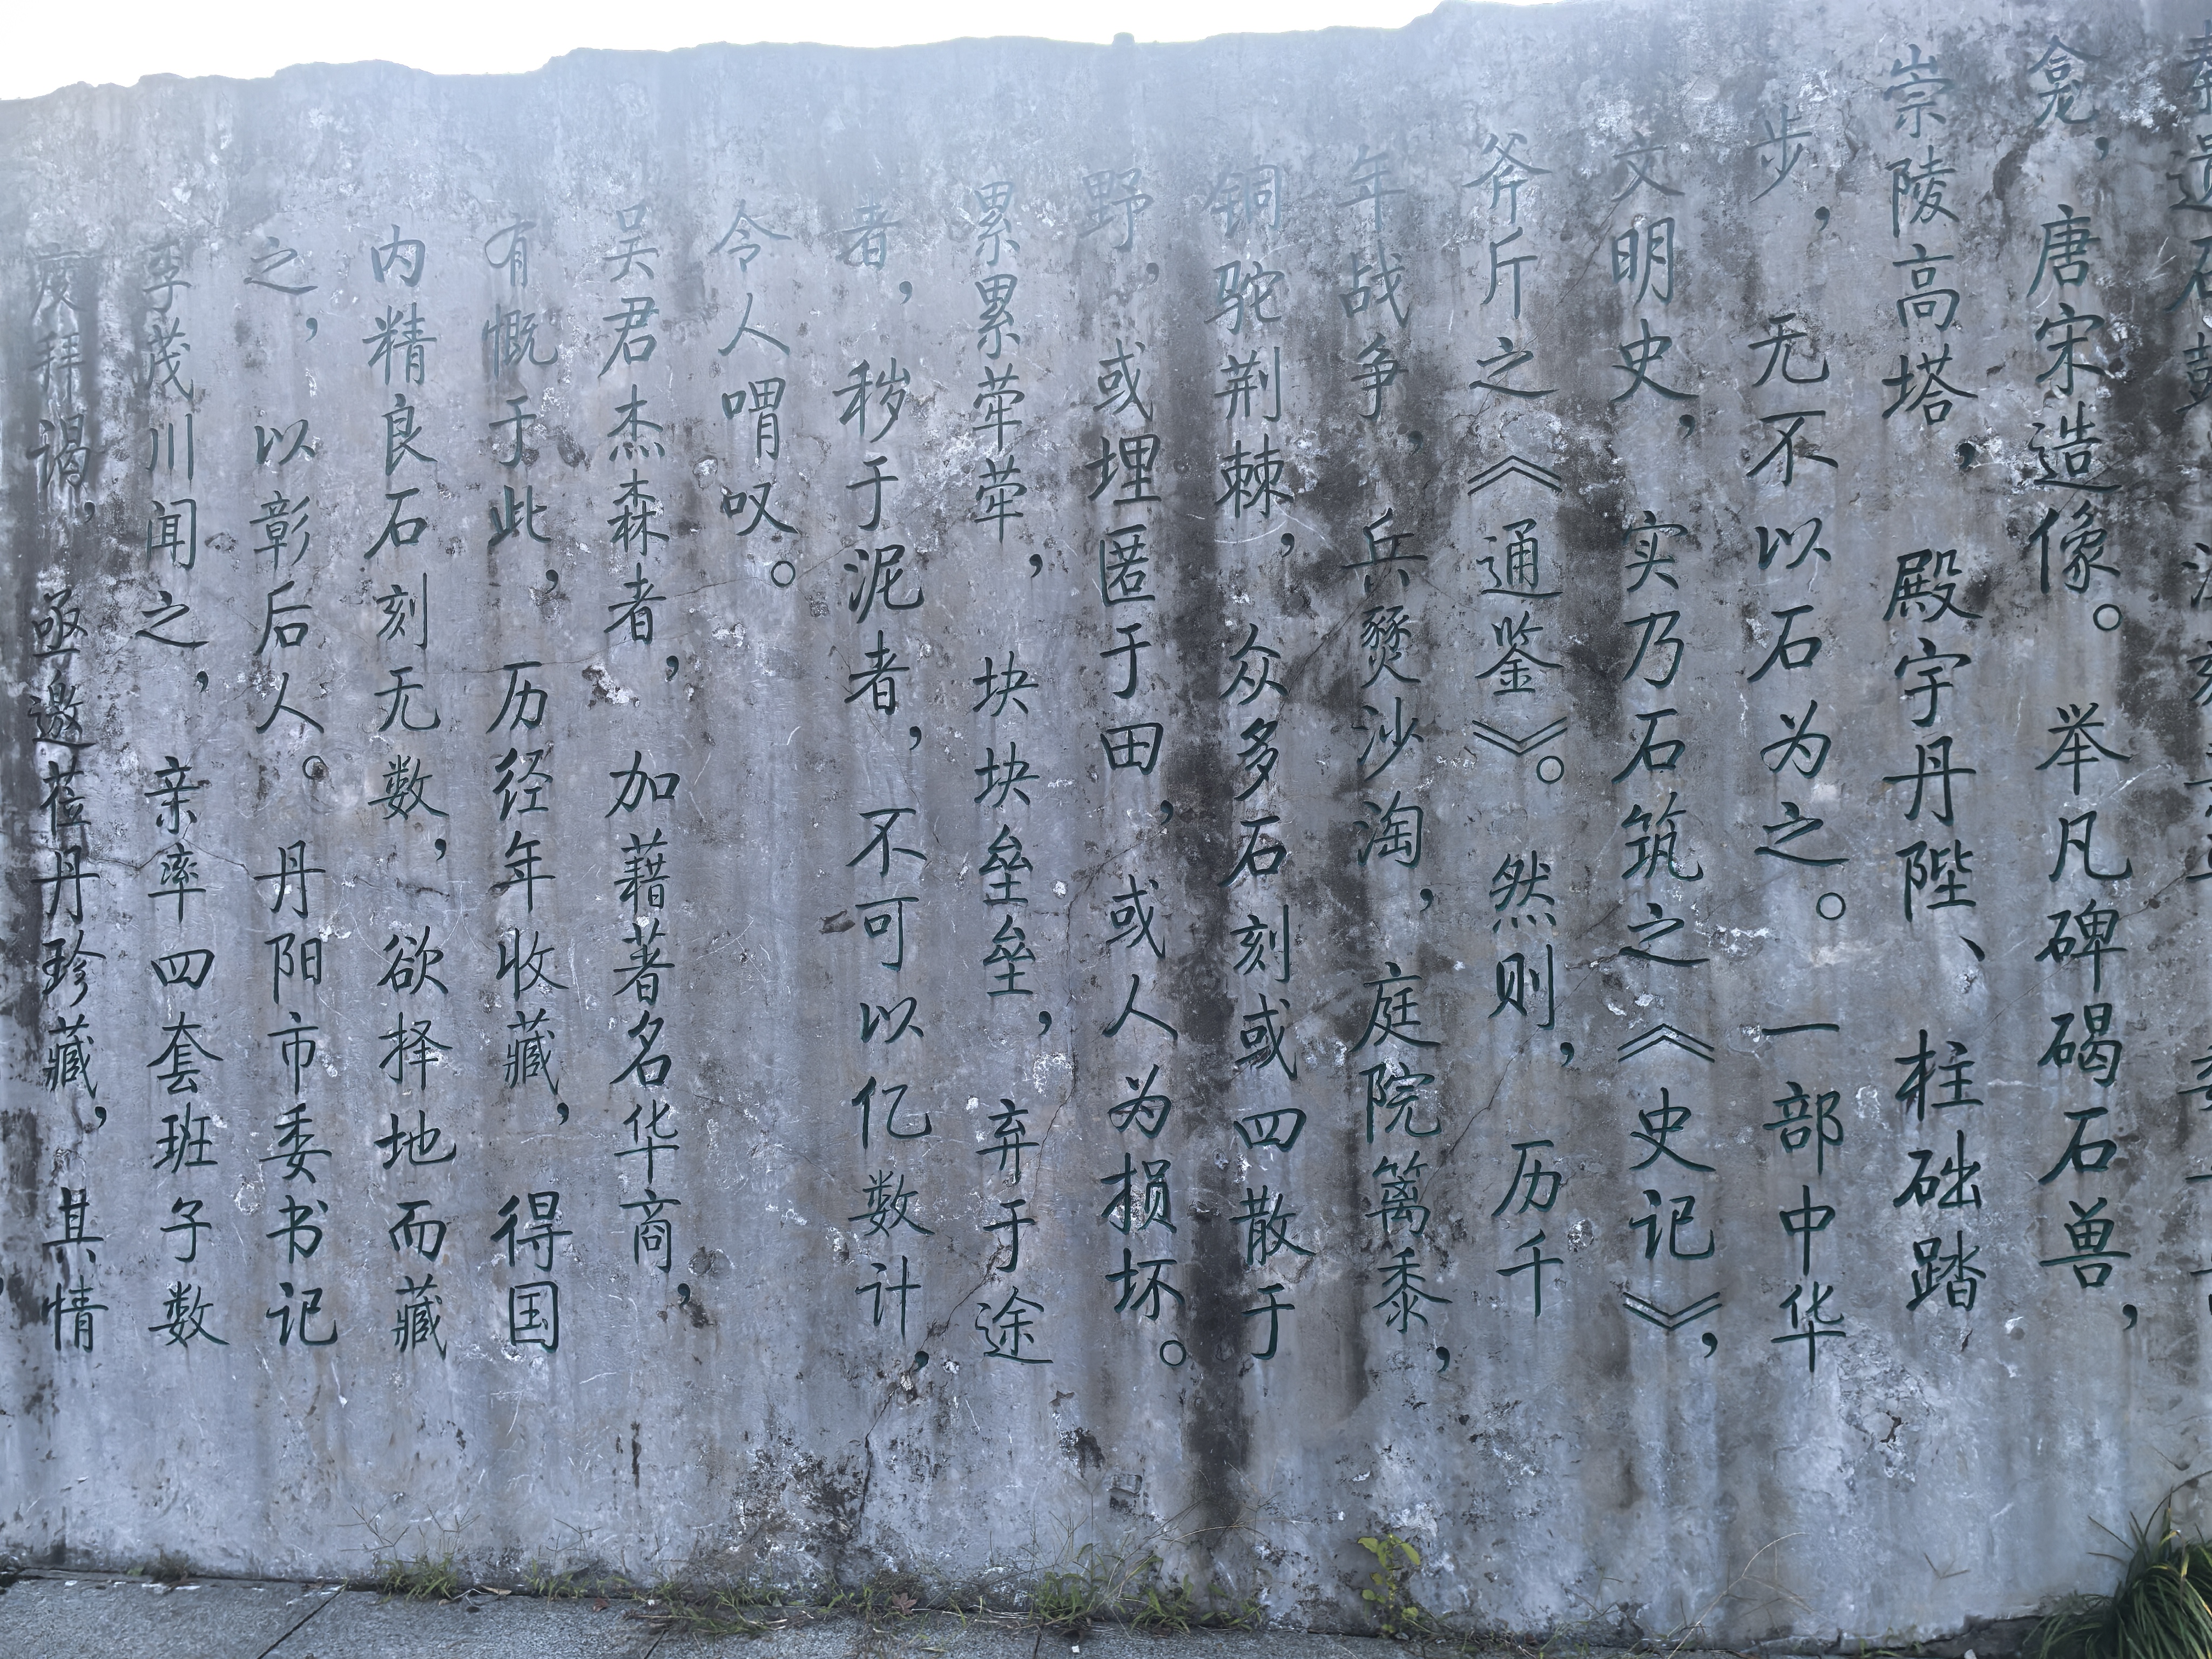 龛，唐宋造像。举凡碑碣石兽，
崇陵高塔，殿宇丹陛、柱础踏
步，无不以石为之。一部中华
文明史，实乃石筑之《史记》，
斧斤之《通鉴》。然则，历千
年战争，兵燹沙淘，庭院篱黍，
铜驼荆棘，众多石刻或四散于
野，或埋匿于田，或人为损坏。
累累荦荦，块块垒垒，弃于途
者，秽于泥者，不可以亿数计，
令人喟叹。
吴君杰森者，加藉著名华商，
有慨于此，历经年收藏，得国
内精良石刻无数，欲择地而藏
之，以彰后人。丹阳市委书记
李茂川闻之，亲率四套班子数
度拜谒，亟邀莅丹珍藏，其情